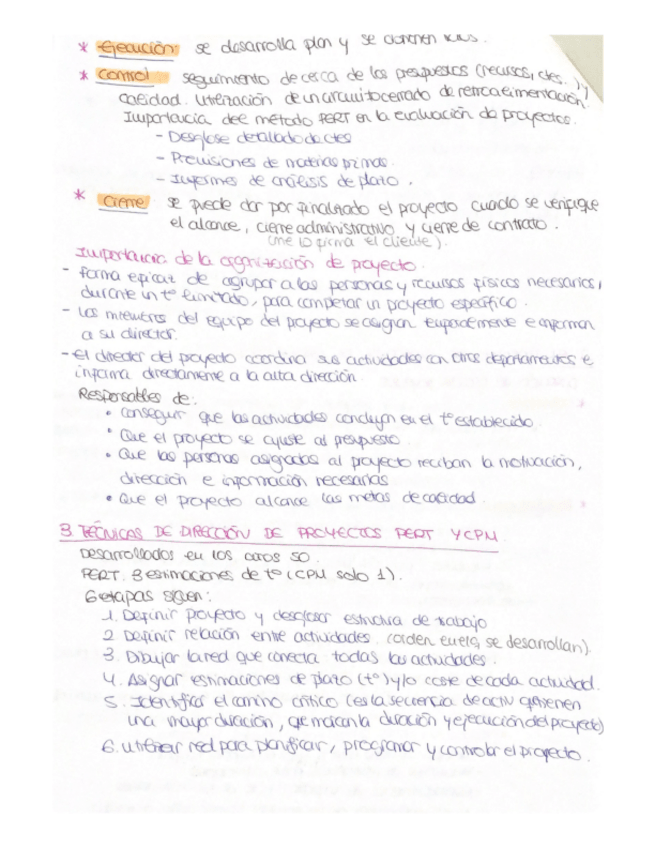 * Ejecución: se desarrolla plan y se obtienen
* Control seguimiento de cerca de los presupuestos (recursos, ctes.) y
calidad. Utilización de un circuito cerrado de retroalimentación
Importancia del método PERT en la evaluación de proyectos.
- Desglose detallado de ctes
- Previsiones de materias primas.
- Informes de análisis de plazo.
* Cierre se puede dar por finalizado el proyecto cuando se verifique
el alcance, cierre administrativo y cierre de contrato.
(me lo firma el cliente).
Importancia de la organización de proyecto.
- forma eficaz de agrupar a las personas y recursos físicos necesarios,
durante un tº limitado, para completar un proyecto específico.
- Los miembros del equipo del proyecto se asignan temporalmente e informan
a su director.
- El director del proyecto coordina sus actividades con otros departamentos e
informa directamente a la alta dirección.
Responsables de:
• conseguir que las actividades concluyan en el tº establecido.
• Que el proyecto se ajuste al presupuesto.
• Que las personas asignadas al proyecto reciban la motivación,
dirección e información necesarias
• Que el proyecto alcance las metas de calidad.
3. TÉCNICAS DE DIRECCIÓN DE PROYECTOS PERT Y CPM.
Desarrollados en los años 50.
PERT. 3 estimaciones de tº (CPM solo 1).
6 etapas siguen:
1. Definir proyecto y desglosar estructura de trabajo
2. Definir relación entre actividades. (orden en el q se desarrollan).
3. Dibujar la red que conecta todas las actividades.
4. Asignar estimaciones de plazo (tº) y/o coste de cada actividad.
5. Identificar el camino crítico (es la secuencia de activ q tienen
una mayor duración, que marcan la duración y ejecución del proyecto)
6. utilizar red para planificar, programar y controlar el proyecto.